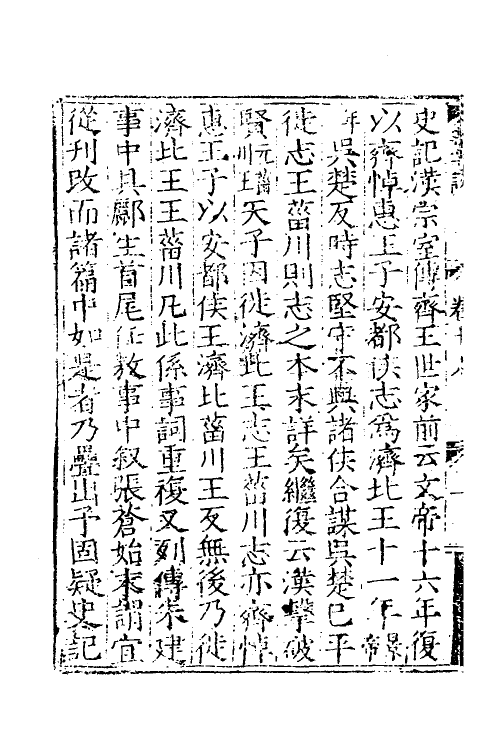 史記漢宗室傳齊王世家前云文帝十六年復
以齊悼惠王子安都侯志爲濟北王十一年帝景
年吳楚反時志堅守不與諸侯合謀吳楚已平
徙志王菑川則志之本末詳矣繼復云漢擊破
賢川元王菑天子因徙濟北王志王菑川志亦齊悼
惠王子以安都侯王濟北菑川王反無後乃徙
濟北王王菑川凡此係事詞重複又列傳朱建
事中具酈生首尾任敖事中叙張蒼始末謂宜
從刊改而諸篇中如是者乃疊出予固疑史記